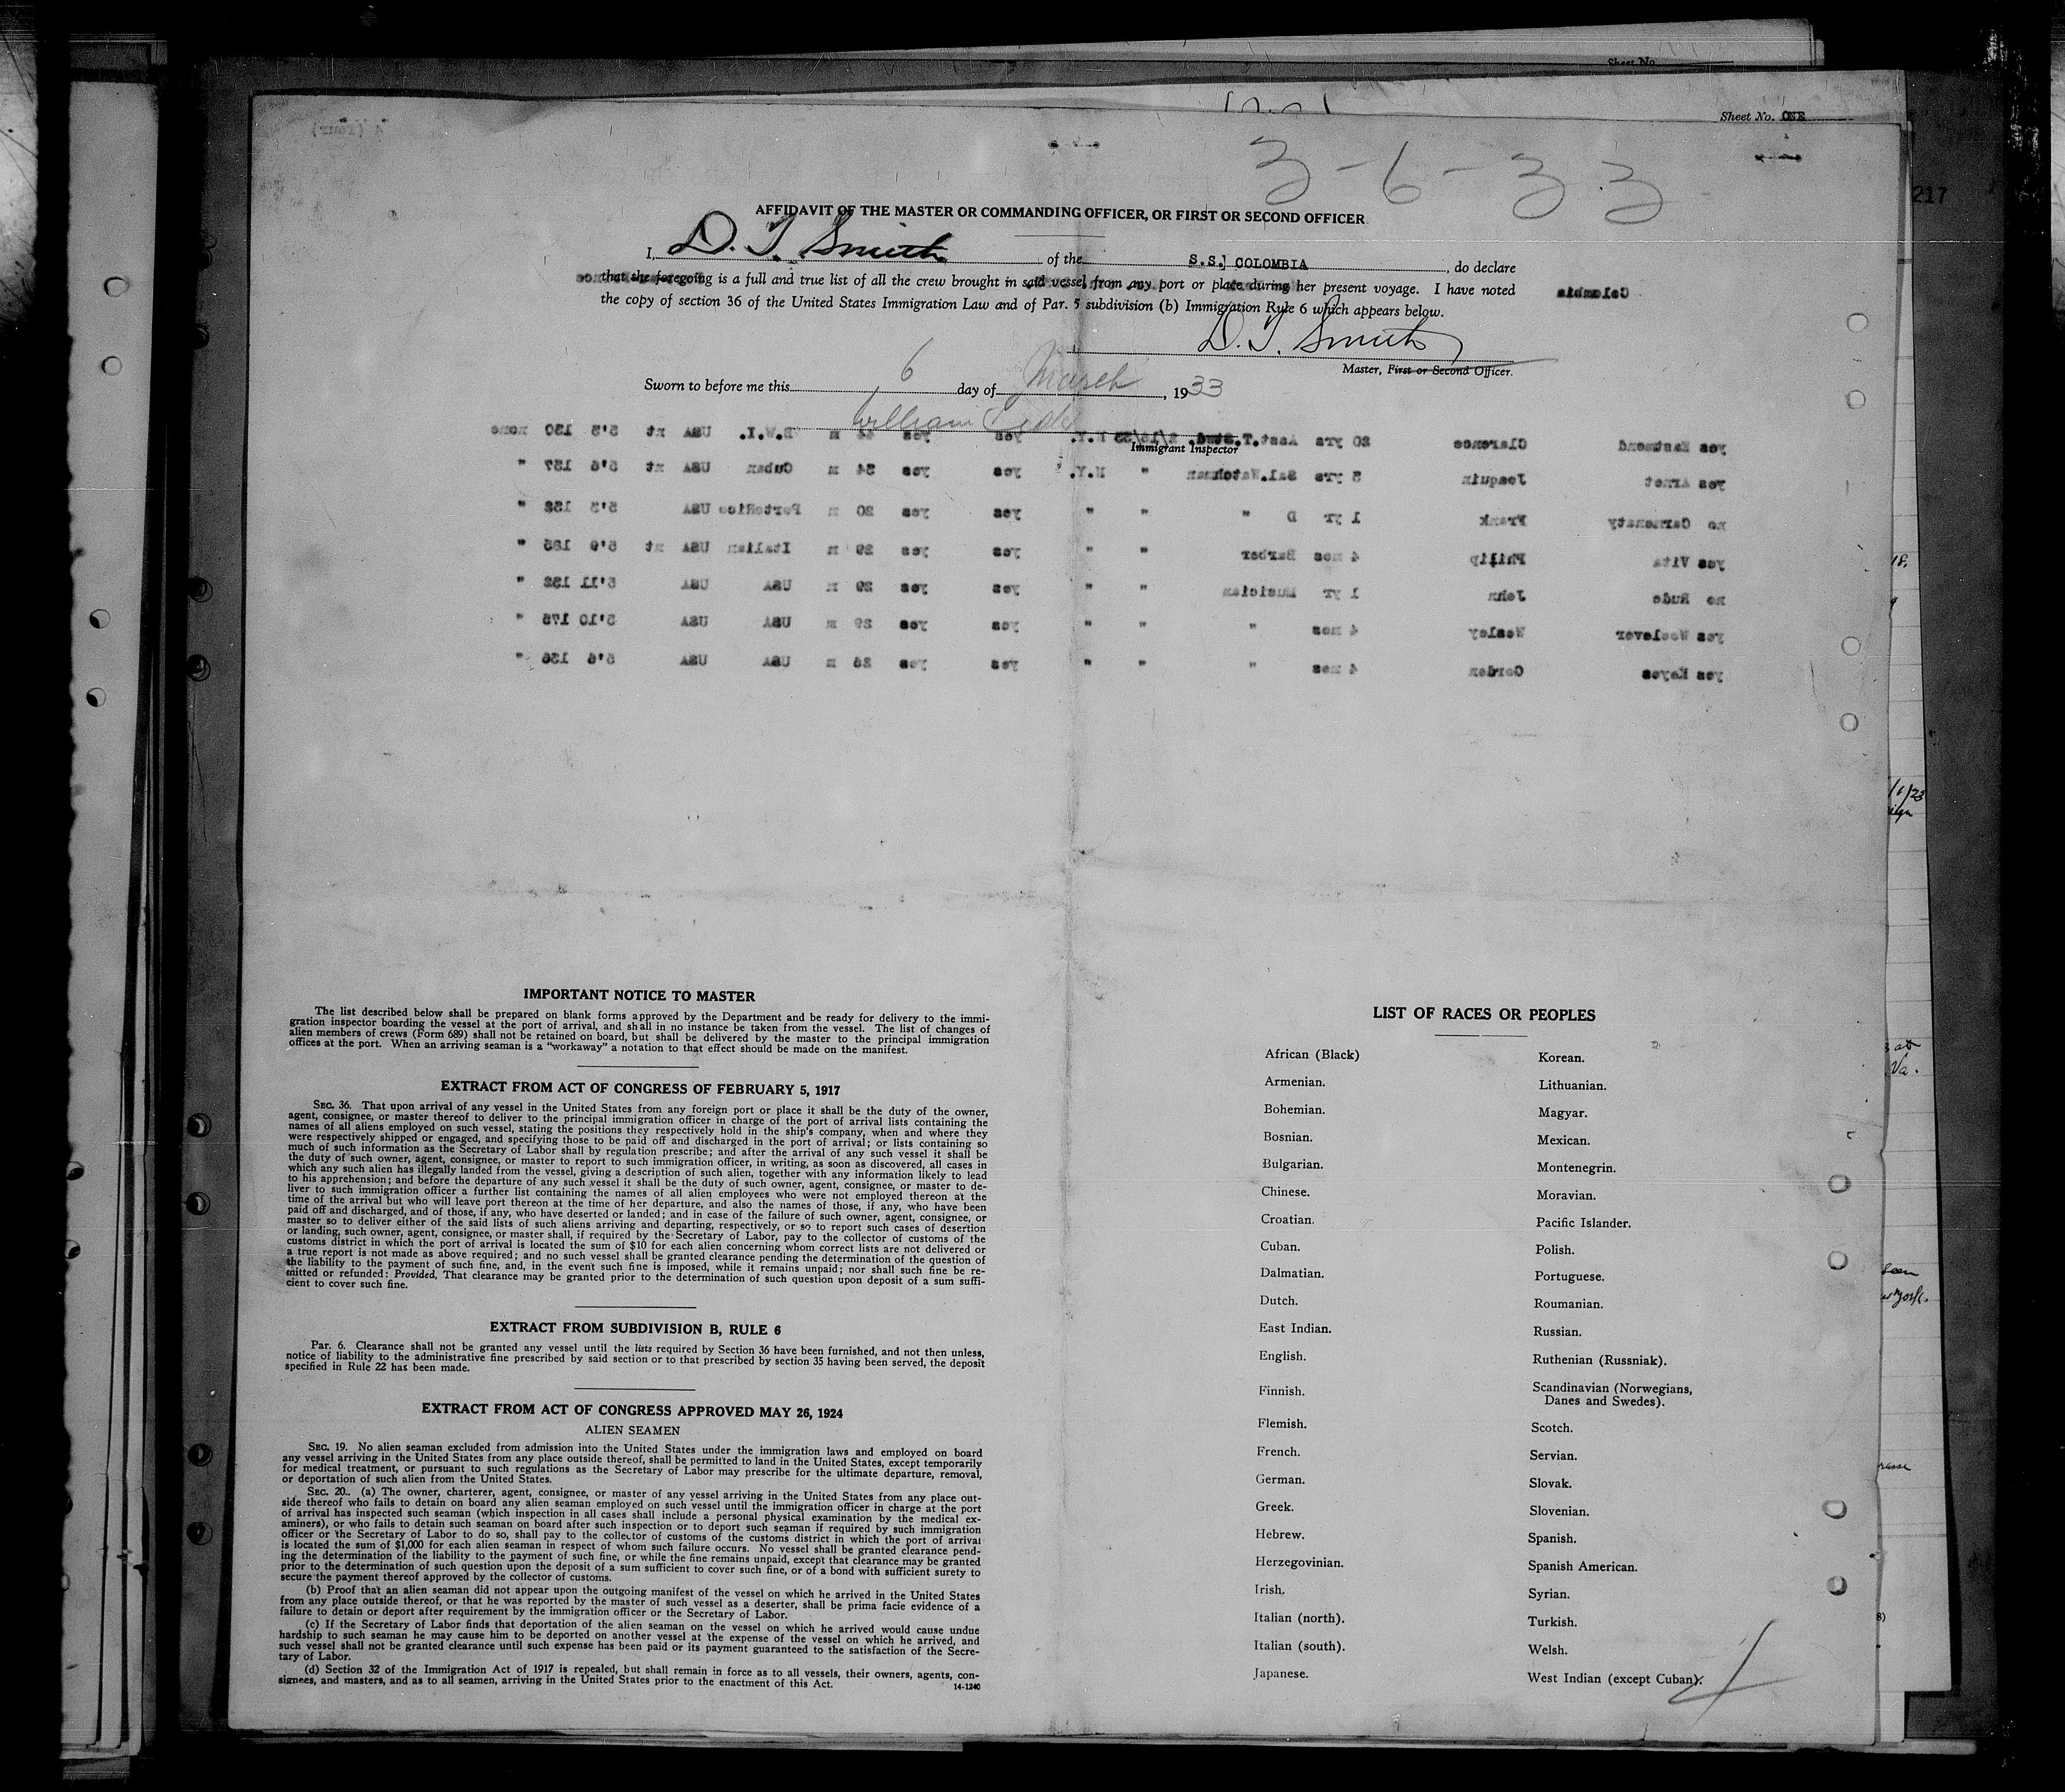 Sheet No.
Sheet No. ONE
4 (four)
3-6-33
217
AFFIDAVIT OF THE MASTER OR COMMANDING OFFICER, OR FIRST OR SECOND OFFICER
I, D. T. Smith of the S.S. COLOMBIA, do declare
that the foregoing is a full and true list of all the crew brought in said vessel from any port or place during her present voyage. I have noted
Colombia
the copy of section 36 of the United States Immigration Law and of Par. 5 subdivision (b) Immigration Rule 6 which appears below.
D. T. Smith
Master, First or Second Officer.
Sworn to before me this 6 day of March, 1933
William
Immigrant Inspector
yes Eastmond Clarence 20 yrs Asst.T.Stwd. N.Y. yes yes 44 m B.W.I. USA nt 5'3 130 none
yes Armet Joaquin 3 yrs Sal.Watchman " N.Y. yes yes 34 m Cuban USA nt 5'6 137 "
no Carmenaty Frank 1 yr D " " " yes yes 20 m PortoRico USA 5'3 132 "
yes Vita Philip 4 mos Barber " " yes yes 29 m Italian USA nt 5'9 185 "
no Rude John 1 yr Musician " " yes yes 29 m USA USA 5'11 132 "
yes Woolever Wesley 4 mos " " " yes yes 29 m USA USA 5'10 175 "
yes Keyes Gordon 4 mos " " " yes yes 26 m USA USA 5'6 136 "
IMPORTANT NOTICE TO MASTER
The list described below shall be prepared on blank forms approved by the Department and be ready for delivery to the immi-
gration inspector boarding the vessel at the port of arrival, and shall in no instance be taken from the vessel. The list of changes of
alien members of crews (Form 689) shall not be retained on board, but shall be delivered by the master to the principal immigration
offices at the port. When an arriving seaman is a "workaway" a notation to that effect should be made on the manifest.
EXTRACT FROM ACT OF CONGRESS OF FEBRUARY 5, 1917
SEC. 36. That upon arrival of any vessel in the United States from any foreign port or place it shall be the duty of the owner,
agent, consignee, or master thereof to deliver to the principal immigration officer in charge of the port of arrival lists containing the
names of all aliens employed on such vessel, stating the positions they respectively hold in the ship's company, when and where they
were respectively shipped or engaged, and specifying those to be paid off and discharged in the port of arrival; or lists containing so
much of such information as the Secretary of Labor shall by regulation prescribe; and after the arrival of any such vessel it shall be
the duty of such owner, agent, consignee, or master to report to such immigration officer, in writing, as soon as discovered, all cases in
which any such alien has illegally landed from the vessel, giving a description of such alien, together with any information likely to lead
to his apprehension; and before the departure of any such vessel it shall be the duty of such owner, agent, consignee, or master to de-
liver to such immigration officer a further list containing the names of all alien employees who were not employed thereon at the
time of the arrival but who will leave port thereon at the time of her departure, and also the names of those, if any, who have been
paid off and discharged, and of those, if any, who have deserted or landed; and in case of the failure of such owner, agent, consignee, or
master so to deliver either of the said lists of such aliens arriving and departing, respectively, or so to report such cases of desertion
or landing, such owner, agent, consignee, or master shall, if required by the Secretary of Labor, pay to the collector of customs of the
customs district in which the port of arrival is located the sum of $10 for each alien concerning whom correct lists are not delivered or
a true report is not made as above required; and no such vessel shall be granted clearance pending the determination of the question of
the liability to the payment of such fine, and, in the event such fine is imposed, while it remains unpaid; nor shall such fine be re-
mitted or refunded: Provided, That clearance may be granted prior to the determination of such question upon deposit of a sum suffi-
cient to cover such fine.
EXTRACT FROM SUBDIVISION B, RULE 6
Par. 6. Clearance shall not be granted any vessel until the lists required by Section 36 have been furnished, and not then unless,
notice of liability to the administrative fine prescribed by said section or to that prescribed by section 35 having been served, the deposit
specified in Rule 22 has been made.
EXTRACT FROM ACT OF CONGRESS APPROVED MAY 26, 1924
ALIEN SEAMEN
SEC. 19. No alien seaman excluded from admission into the United States under the immigration laws and employed on board
any vessel arriving in the United States from any place outside thereof, shall be permitted to land in the United States, except temporarily
for medical treatment, or pursuant to such regulations as the Secretary of Labor may prescribe for the ultimate departure, removal,
or deportation of such alien from the United States.
SEC. 20.. (a) The owner, charterer, agent, consignee, or master of any vessel arriving in the United States from any place out-
side thereof who fails to detain on board any alien seaman employed on such vessel until the immigration officer in charge at the port
of arrival has inspected such seaman (which inspection in all cases shall include a personal physical examination by the medical ex-
aminers), or who fails to detain such seaman on board after such inspection or to deport such seaman if required by such immigration
officer or the Secretary of Labor to do so, shall pay to the collector of customs of the customs district in which the port of arrival
is located the sum of $1,000 for each alien seaman in respect of whom such failure occurs. No vessel shall be granted clearance pend-
ing the determination of the liability to the payment of such fine, or while the fine remains unpaid, except that clearance may be granted
prior to the determination of such question upon the deposit of a sum sufficient to cover such fine, or of a bond with sufficient surety to
secure the payment thereof approved by the collector of customs.
(b) Proof that an alien seaman did not appear upon the outgoing manifest of the vessel on which he arrived in the United States
from any place outside thereof, or that he was reported by the master of such vessel as a deserter, shall be prima facie evidence of a
failure to detain or deport after requirement by the immigration officer or the Secretary of Labor.
(c) If the Secretary of Labor finds that deportation of the alien seaman on the vessel on which he arrived would cause undue
hardship to such seaman he may cause him to be deported on another vessel at the expense of the vessel on which he arrived, and
such vessel shall not be granted clearance until such expense has been paid or its payment guaranteed to the satisfaction of the Secre-
tary of Labor.
(d) Section 32 of the Immigration Act of 1917 is repealed, but shall remain in force as to all vessels, their owners, agents, con-
signees, and masters, and as to all seamen, arriving in the United States prior to the enactment of this Act.
14-1240
LIST OF RACES OR PEOPLES
African (Black)
Armenian.
Bohemian.
Bosnian.
Bulgarian.
Chinese.
Croatian.
Cuban.
Dalmatian.
Dutch.
East Indian.
English.
Finnish.
Flemish.
French.
German.
Greek.
Hebrew.
Herzegovinian.
Irish.
Italian (north).
Italian (south).
Japanese.
Korean.
Lithuanian.
Magyar.
Mexican.
Montenegrin.
Moravian.
Pacific Islander.
Polish.
Portuguese.
Roumanian.
Russian.
Ruthenian (Russniak).
Scandinavian (Norwegians,
Danes and Swedes).
Scotch.
Servian.
Slovak.
Slovenian.
Spanish.
Spanish American.
Syrian.
Turkish.
Welsh.
West Indian (except Cuban).